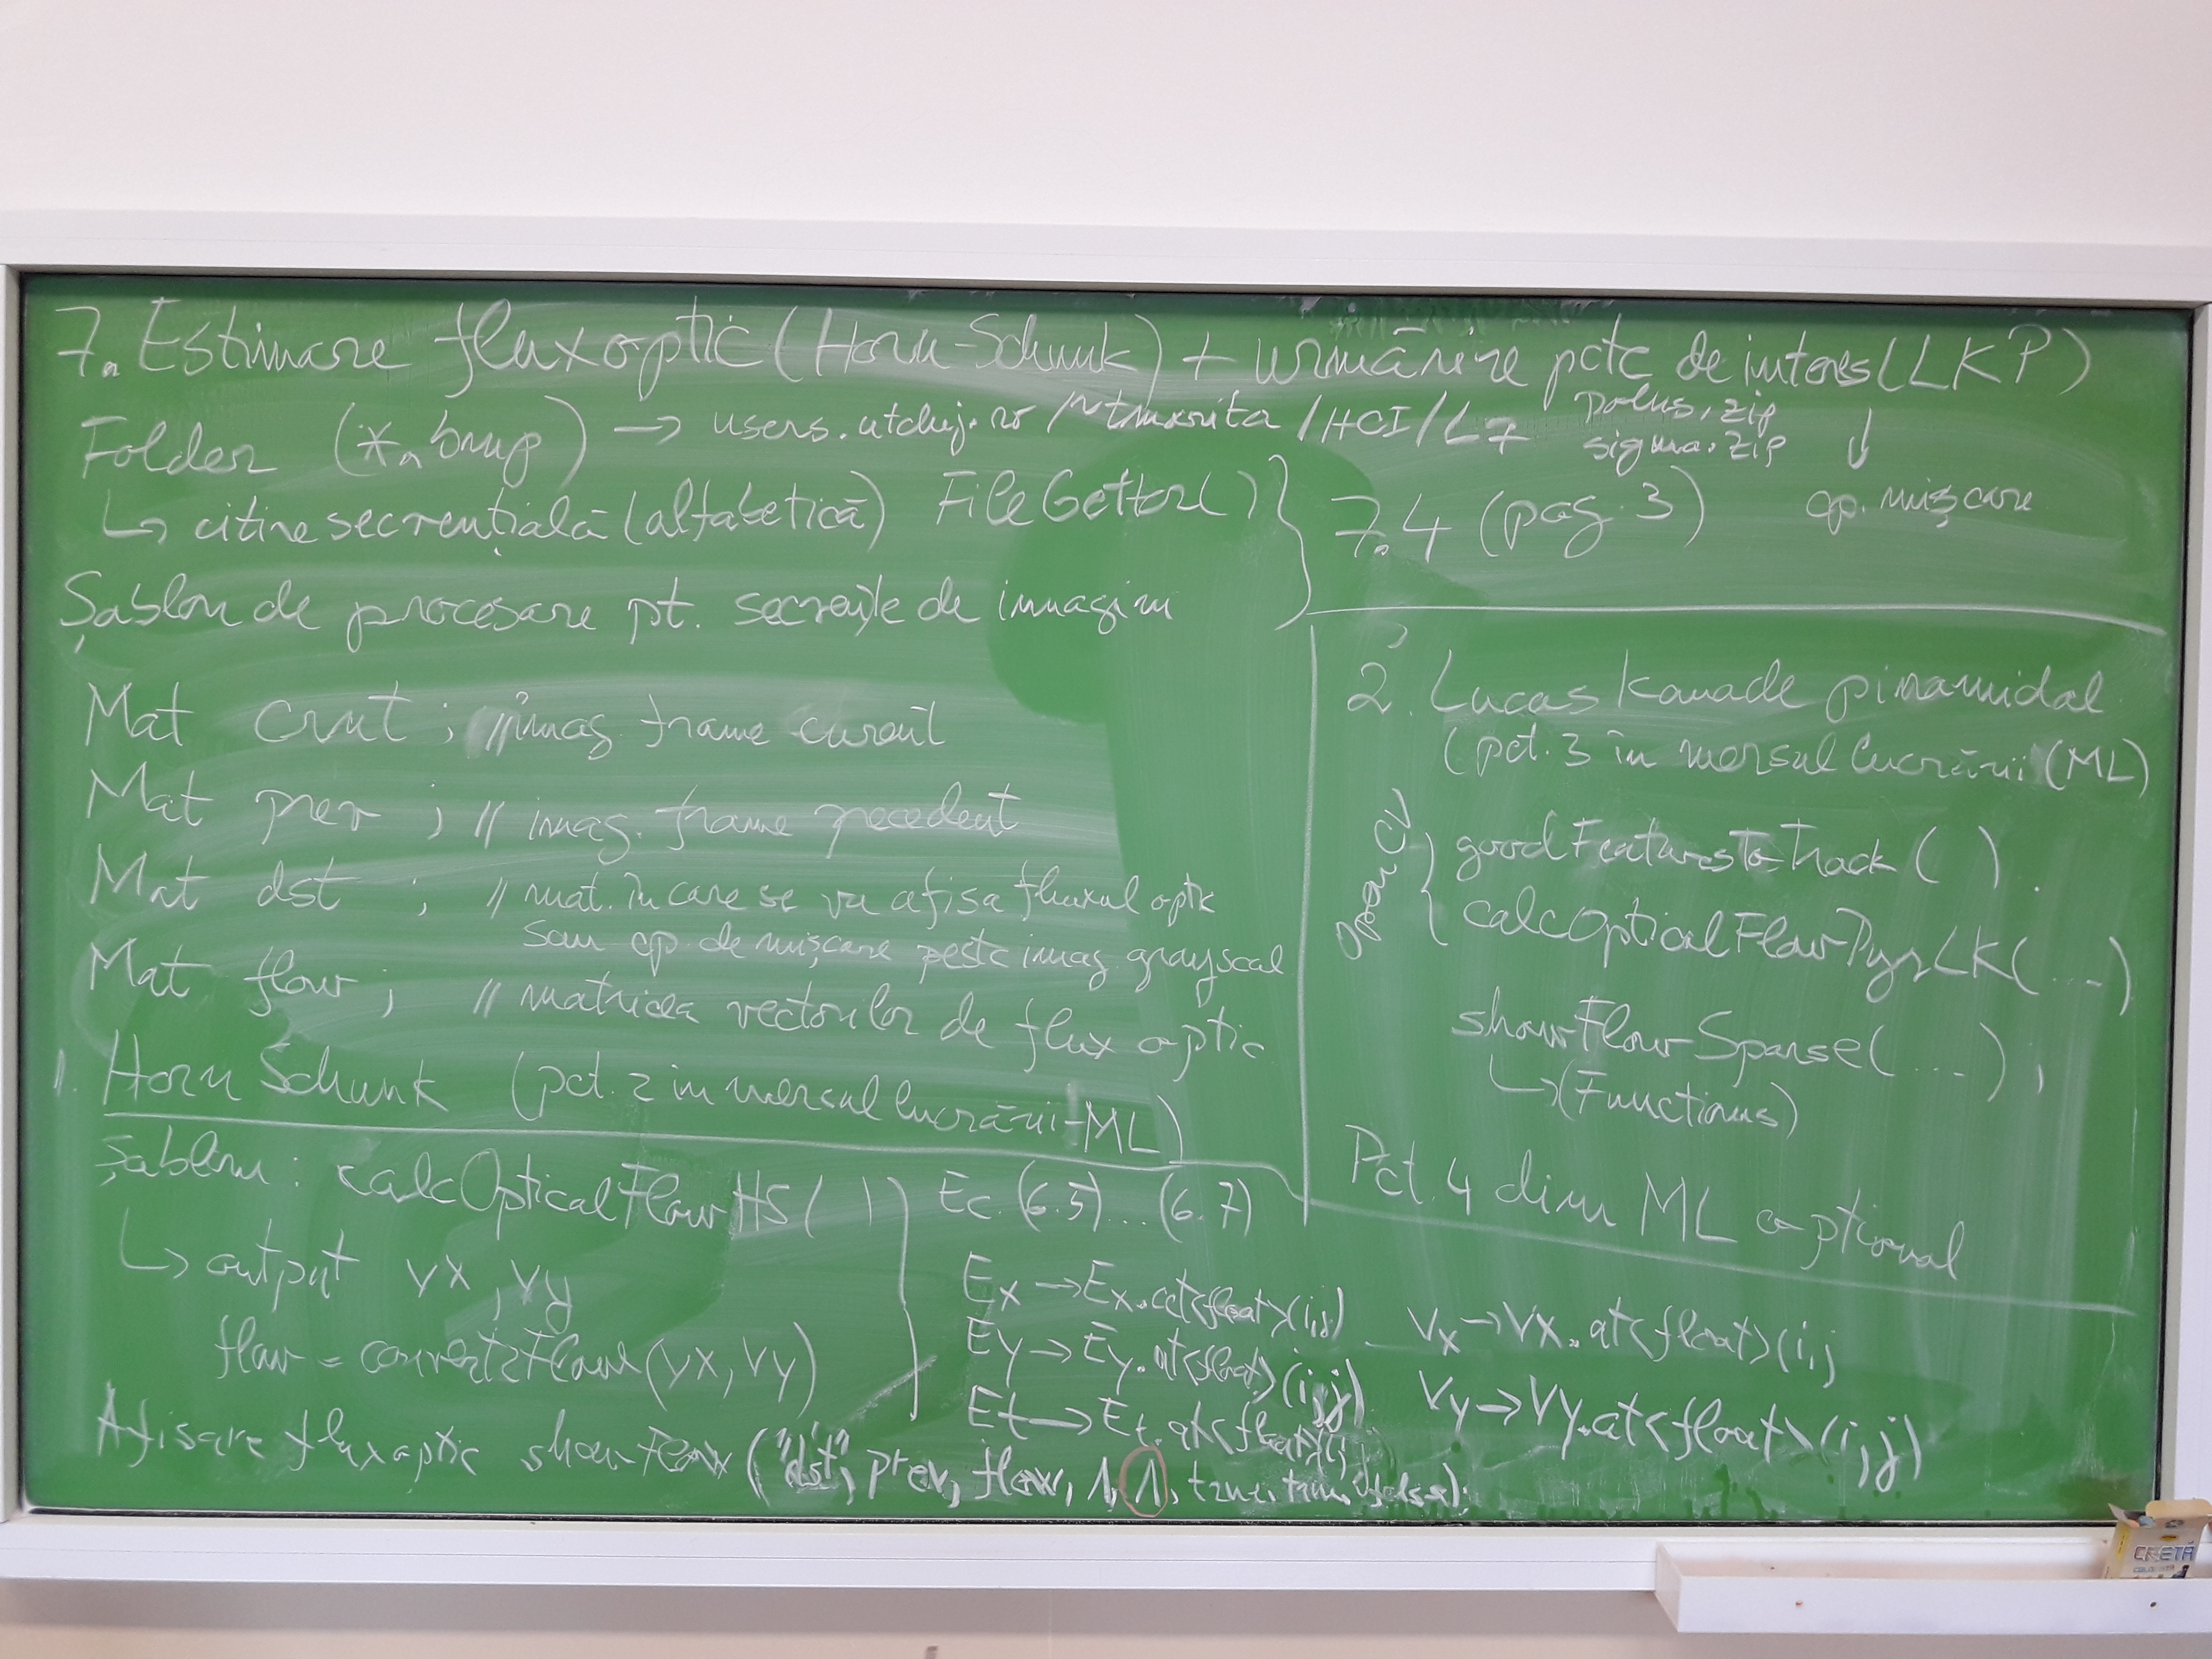 7. Estimare flux optic (Horn-Schunk) + urmărire pcte de interes (LKP)
Folder (*.bmp) → users.utcluj.ro/~tmarita/HCI/L7 polus.zip
sigma.zip
↓
↳ citire secvențială (alfabetică) FileGetter( )
7.4 (pag. 3) cp. mișcare
Șablon de procesare pt. secvențe de imagini
Mat crnt ; // imag frame curent
Mat prev ; // imag. frame precedent
Mat dst ; // mat. în care se va afisa fluxul optic
sau cp. de mișcare peste imag grayscal
Mat flow ; // matricea vectorilor de flux optic
1. Horn Schunk (pct. 2 in mersul lucrării-ML)
Șablon : calcOpticalFlowHS( )
↳ output vx, vy
flow = convert2flow(vx, vy)
Afisare flux optic showFlow ("dst", prev, flow, 1, 1, true, true, false);
Ec. (6.5)...(6.7)
Ex → Ex.at<float>(i,j)
Ey → Ey.at<float>(i,j)
Et → Et.at<float>(i,j
Vx → Vx.at<float>(i,j
Vy → Vy.at<float>(i,j)
2. Lucas Kanade piramidal
(pct. 3 în mersul lucrării (ML)
OpenCV
goodFeaturesToTrack ( ).
calcOpticalFlowPyrLK(...)
showFlowSparse(...),
↳ (Functions)
Pct. 4 din ML optional
CRETA